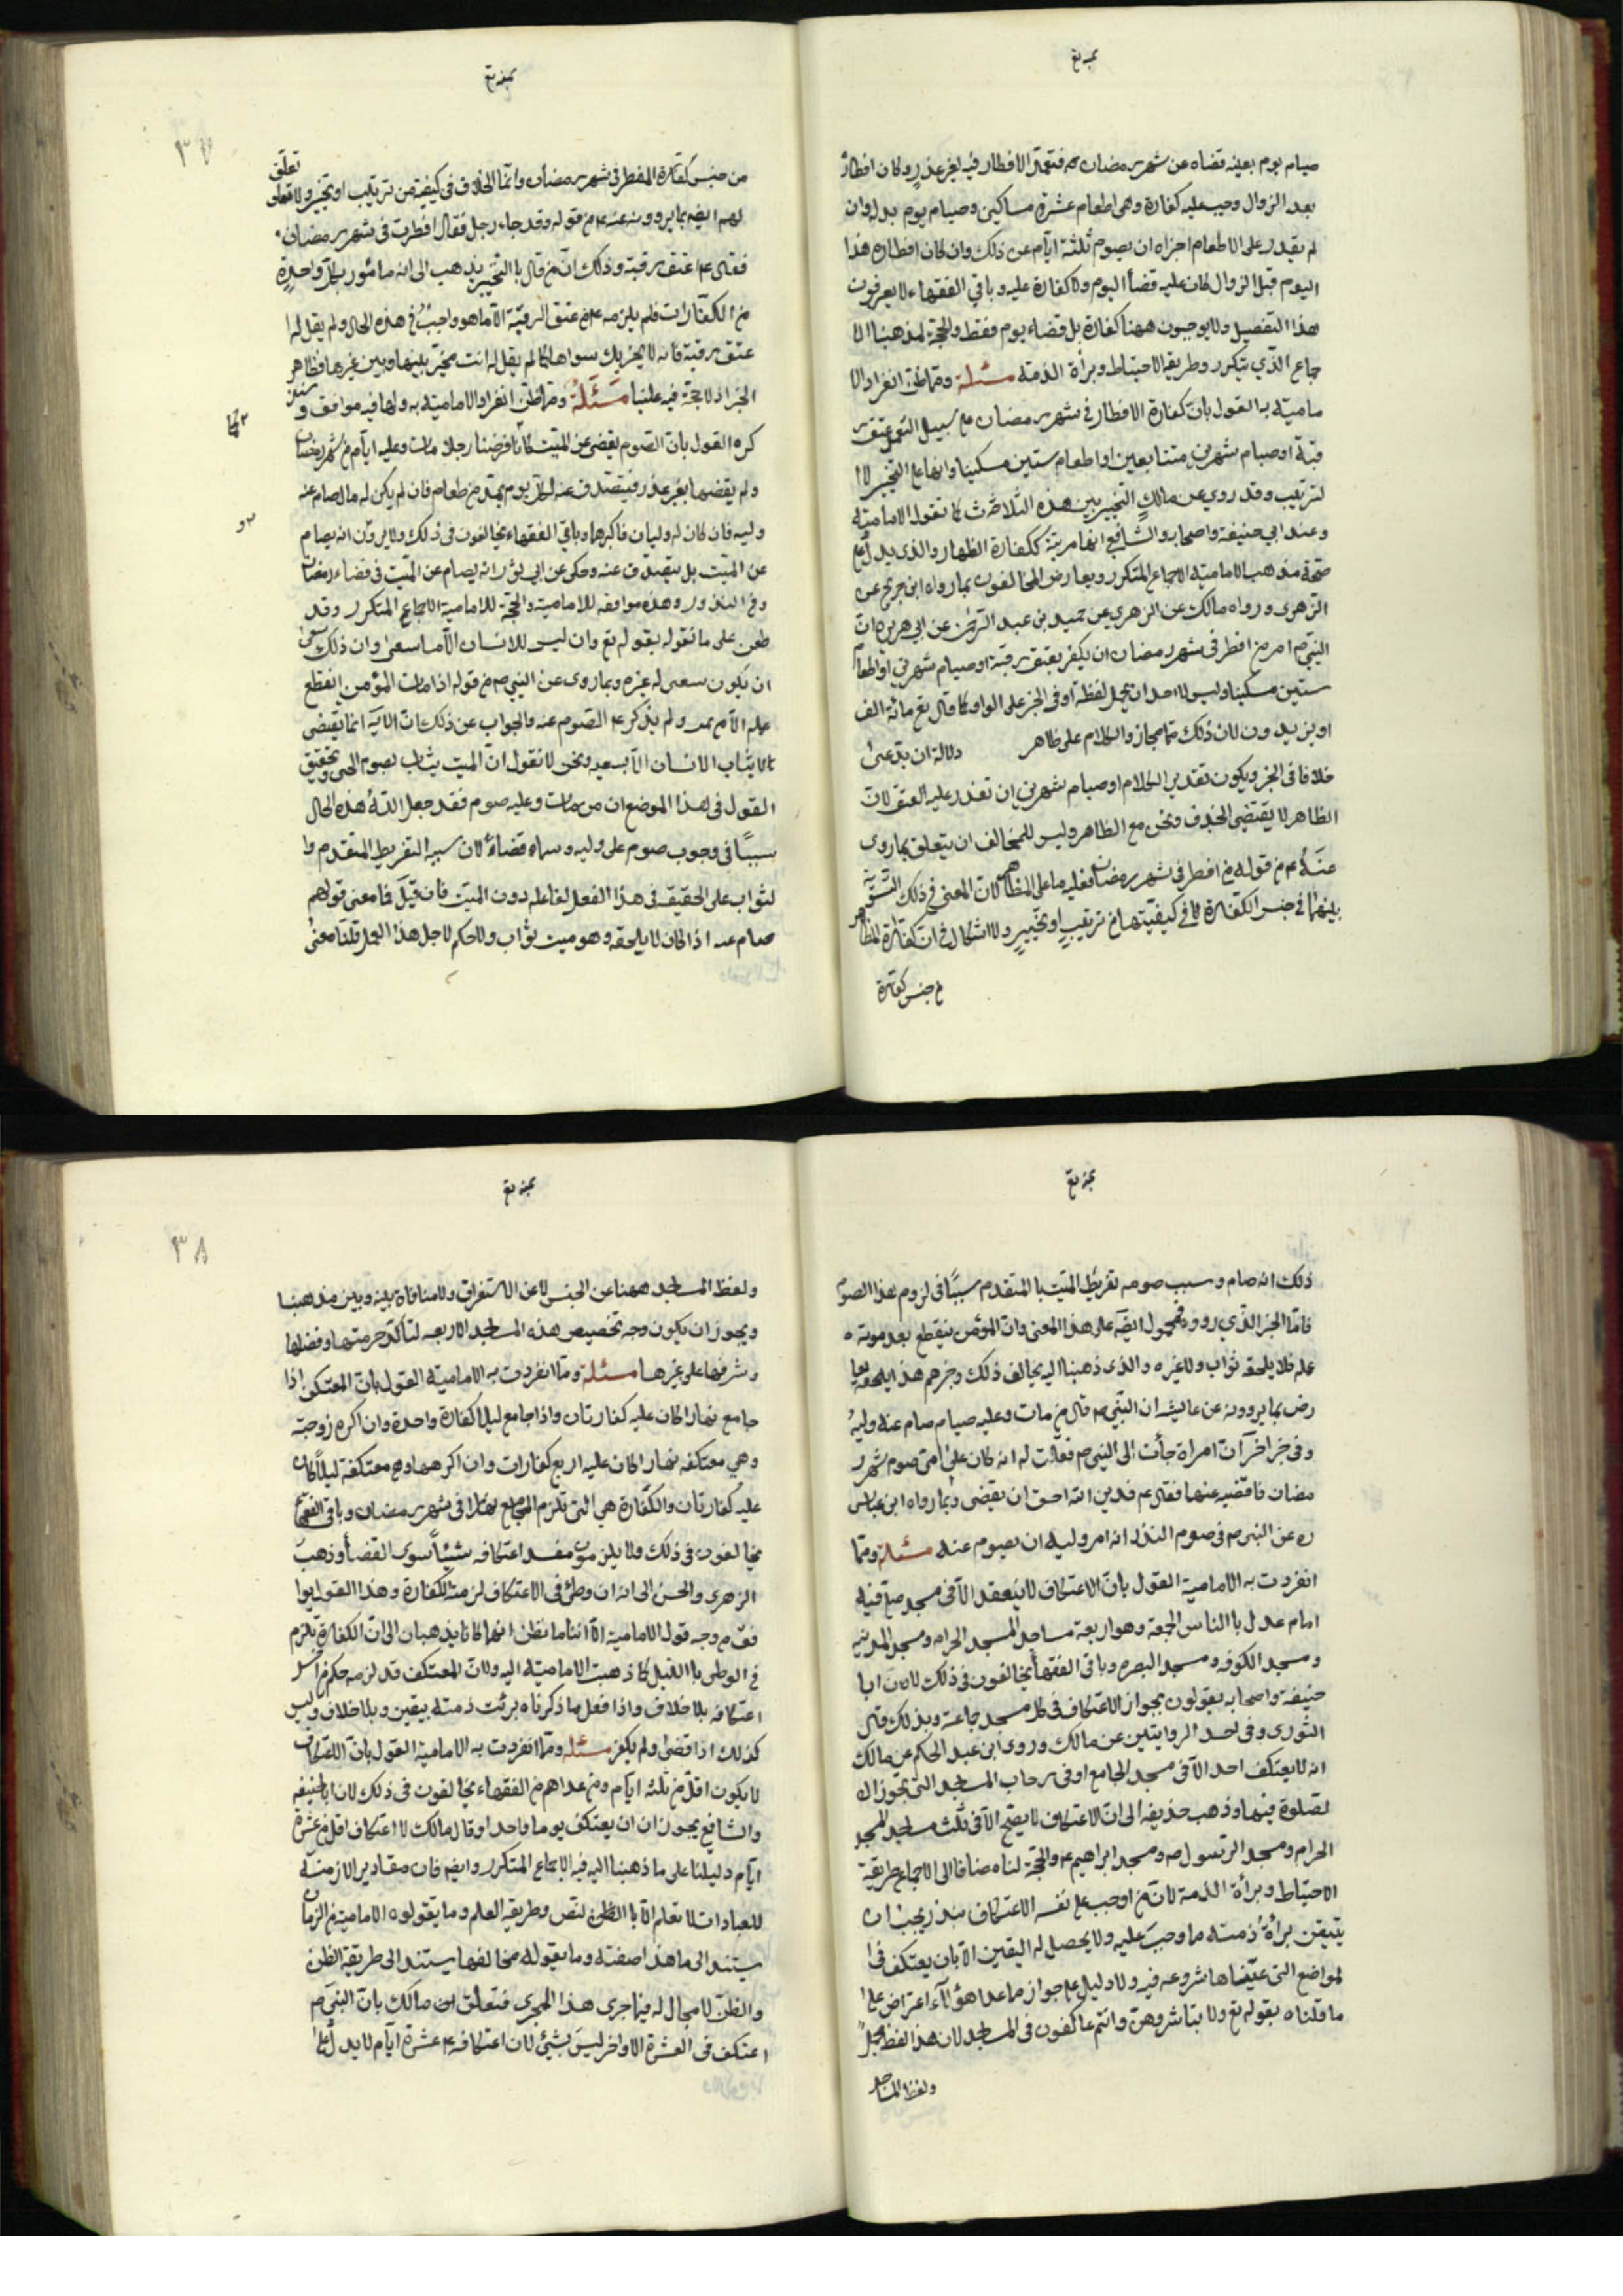 صيام يوم بعينه قضاه عن شهر رمضان فتعمد الافطار فيه لغير عذر وكان افطاره
بعد الزوال وجب عليه كفارة وهى اطعام عشرة مساكين وصيام يوم بدله وان
لم يقدر على الاطعام اجزاه ان يصوم ثلثة ايام عن ذلك وان كان افطاره هذا
اليوم قبل الزوال كان عليه قضأ اليوم ولا كفارة عليه وباقي الفقهاء لا يعرفون
هذا التفصيل ولا يوجبون ههنا كفارة بل قضاء يوم فقط والحجة لمذهبنا الا
جماع الذي يتكرر وطريقة الاحتياط وبرأة الذمة مسئلة ومما ظن انفراد الا
مامية به القول بان كفارة الافطار في شهر رمضان على سبيل التعمد عتق ر
قبة او صيام شهرين متتابعين او اطعام ستين مسكينا وانها على التخيير لا ا
لترتيب وقد روي عن مالك التخيير بين هذه الثلاث كما تقول الامامية
وعند ابي حنيفة واصحابه والشافعي انها مرتبة ككفارة الظهار والذى يدل على
صحة مذهب الامامية الاجماع المتكرر ويعارض المخالفون بما رواه ابن جريج عن
الزهرى ورواه مالك عن الزهري عن حميد بن عبد الرحمن عن ابي هريرة ان
النبي ص امر من افطر في شهر رمضان ان يكفر بعتق رقبة او صيام شهرين او اطعام
ستين مسكينا وليس لاحد ان يحمل لفظة او في الخبر على الواو كما قال تع مائة الف
او يزيدون لان ذلك مجاز والكلام على ظاهر دلالة ان يدعى
خلافا في الخبر ويكون تقدير الكلام او صيام شهرين ان تعذر عليه العتق لان
الظاهر لا يقتضى الحذف ونحن مع الظاهر وليس للمخالف ان يتعلق بما روى
عنه من قوله من افطر في شهر رمضان فعليه ما على المظاهر لان المعنى في ذلك التسوية
بينهما في جنس الكفارة لا في كيفيتها من ترتيب او تخيير ولا اشكال في ان كفارة المظاهر
من جنس كفارة
من جنس كفارة المفطر في شهر رمضان وانما الخلاف في كيفية من ترتيب او تخيير ولا تعلق
لهم ايضا بما يروونه عنه من قوله وقد جاء رجل فقال افطرت في شهر رمضان
فقال اعتق رقبة وذلك ان من قال بالتخيير يذهب الى انه مأمور بكل واحدة
من الكفارات فلم يلزمه من عتق الرقبة الا ما هو واجب في هذه الحال ولم يقل له ا
عتق رقبة فانه لا يجزيك سواها كما لم يقل له انت مخير بينها وبين غيرها فظاهر
الخبر اذ لا حجة فيه علينا مسئلة ومما ظن انفراد الامامية به ولها فيه موافق
كره القول بان الصوم يقضى عن الميت كانا فرضنا رجلا مات وعليه ايام من شهر رمضان
ولم يقضها بغير عذر فيتصدق عنه لكل يوم بمد من طعام فان لم يكن له مال صام عنه
وليه فان كان له وليان فاكبرهما وباقي الفقهاء يخالفون في ذلك ولا يرون انه يصام
عن الميت بل يتصدق عنه وحكى عن ابي ثور انه يصام عن الميت في قضاء رمضان
وفي النذور وهذه موافقه للامامية والحجة للامامية الاجماع المتكرر وقد
طعن على ما نقوله بقوله تع وان ليس للانسان الا ما سعى وان ذلك
ان يكون سعى له غيره وبما روى عن النبي ص من قوله اذا مات المؤمن انقطع
عمله الا من ولم يذكر الصوم عنه والجواب عن ذلك ان الاية انما يقتضى
الا يثاب الانسان الا بسعيه ونحن لا نقول ان الميت يثاب بصوم الحي وتحقيق
القول في هذا الموضع ان من مات وعليه صوم فقد جعل الله هذه الحال
سببا في وجوب صوم على وليه وسماه قضاء لان سببه التفريط المتقدم وا
لثواب على الحقيقة في هذا الفعل لفاعله دون الميت فان قيل فما معنى قولهم
صام عنه اذا كان لا يلحقه وهو ميت ثواب ولا حكم لاجل هذا العمل قلنا معنى
٣٧
ذلك انه صام وسبب صومه تفريط الميت با المتقدم سببا في لزوم هذا الصوم
فاما الخبر الذي رووه فمحمول ايضا على هذا المعنى وان المؤمن ينقطع بعد موته
عمله فلا يلحقه ثواب ولا غيره والذى ذهبنا اليه يخالف ذلك وخبرهم هذا يعا
رض بما يروونه عن عايشه ان النبي ص قال من مات وعليه صيام صام عنه وليه
وفي خبر اخر ان امراة جأت الى النبي ص فقالت له انه كان على امى صوم شهر ر
مضان فاقضيه عنها فقال ع م فدين الله احق ان يقضى وبما رواه ابن عباس
ره عن النبي ص في صوم النذر انه امر وليه ان يصوم عنه مسئلة ومما
انفردت به الامامية القول بان الاعتكاف لا ينعقد الا في مسجد صلى فيه
امام عدل بالناس الجمعة وهو اربعة مساجد المسجد الحرام ومسجد المدينه
ومسجد الكوفه ومسجد البصره وباقي الفقهأ يخالفون في ذلك لان ابا
حنيفة واصحابه يقولون بجواز الاعتكاف في كل مسجد جماعة وبذلك قال
الثورى وفي احد الروايتين عن مالك وروى ابن عبد الحكم عن مالك
انه لا يعتكف احد الا في مسجد الجامع او في رحاب المساجد التي يجوز ال
لصلوة فيها وذهب حذيفه الى ان الاعتكاف لا يصح الا في ثلث مساجد المسجد
الحرام ومسجد الرسول ص ومسجد ابراهيم ع والحجة لنا مضافا الى الاجماع طريقة
الاحتياط وبرأة الذمة لان من اوجب على نفسه الاعتكاف بنذر يجب ان
يتيقن برأة ذمته مما وجب عليه ولا يحصل له اليقين الا بان يعتكف في ا
لمواضع التي عيناها شروعه فيه ولا دليل على جواز ما عدا هؤلاء اعتراض على
ما قلناه بقوله تع ولا تباشروهن وانتم عاكفون في المساجد لان هذا لفظ مجمل
ولفظ المساجد
ولفظ المساجد ههنا عن الجنس لا عن الاستغراق ولا منافاة بينه وبين مذهبنا
ويجوز ان يكون وجه تخصيص هذه المساجد الاربعه لتأكد حرمتها وفضلها
وشرفها على غيرها مسئلة ومما انفردت به الامامية القول بان المعتكف اذا
جامع نهارا كان عليه كفارتان واذا جامع ليلا كفارة واحدة وان اكره زوجته
وهي معتكفه نهارا كان عليه اربع كفارات وان اكرهها وهي معتكفة ليلا كان
عليه كفارتان والكفارة هي التي تلزم المجامع نهارا في شهر رمضان وباقي الفقهأ
يخالفون في ذلك ولا يلزمون مفسد اعتكافه شيئا سوى القضأ وذهب
الزهرى والحسن الى انه ان وطئ في الاعتكاف لزمته الكفارة وهذا القول يوا
فق من وجه قول الامامية الا اننا ما نظن انهما كانا يذهبان الى ان الكفارة تلزم
في الوطى بالليل كما ذهبت الامامية اليه ولان المعتكف قد لزمه حكم من افسد
اعتكافه بلا خلاف واذا فعل ما ذكرناه برئت ذمته بيقين وبلا خلاف وليس
كذلك اذا قضى ولم يكفر مسئلة ومما انفردت به الامامية القول بان الاعتكاف
لا يكون اقل من ثلثه ايام ومن عداهم من الفقهاء يخالفون في ذلك لان ابا حنيفه
والشافعي يجوزان ان يعتكف يوما واحدا وقال مالك لا اعتكاف اقل من عشرة
ايام دليلنا على ما ذهبنا اليه فيه الاجماع المتكرر وايضا فان مقادير الازمنة
للعبادات لا تعلم الا با الظن لنص وطريقة العلم وما يقولوه الامامية من الزمان
يستند الى ما هذا صفته وما يقوله مخالفها يستند الى طريقة الظن
والظن لا مجال له فيما جرى هذا المجرى فتعلق ابن مالك بان النبي ص
اعتكف في العشرة الاواخر ليس بشئ لان اعتكافه ع عشرة ايام لا يدل على
٣٨